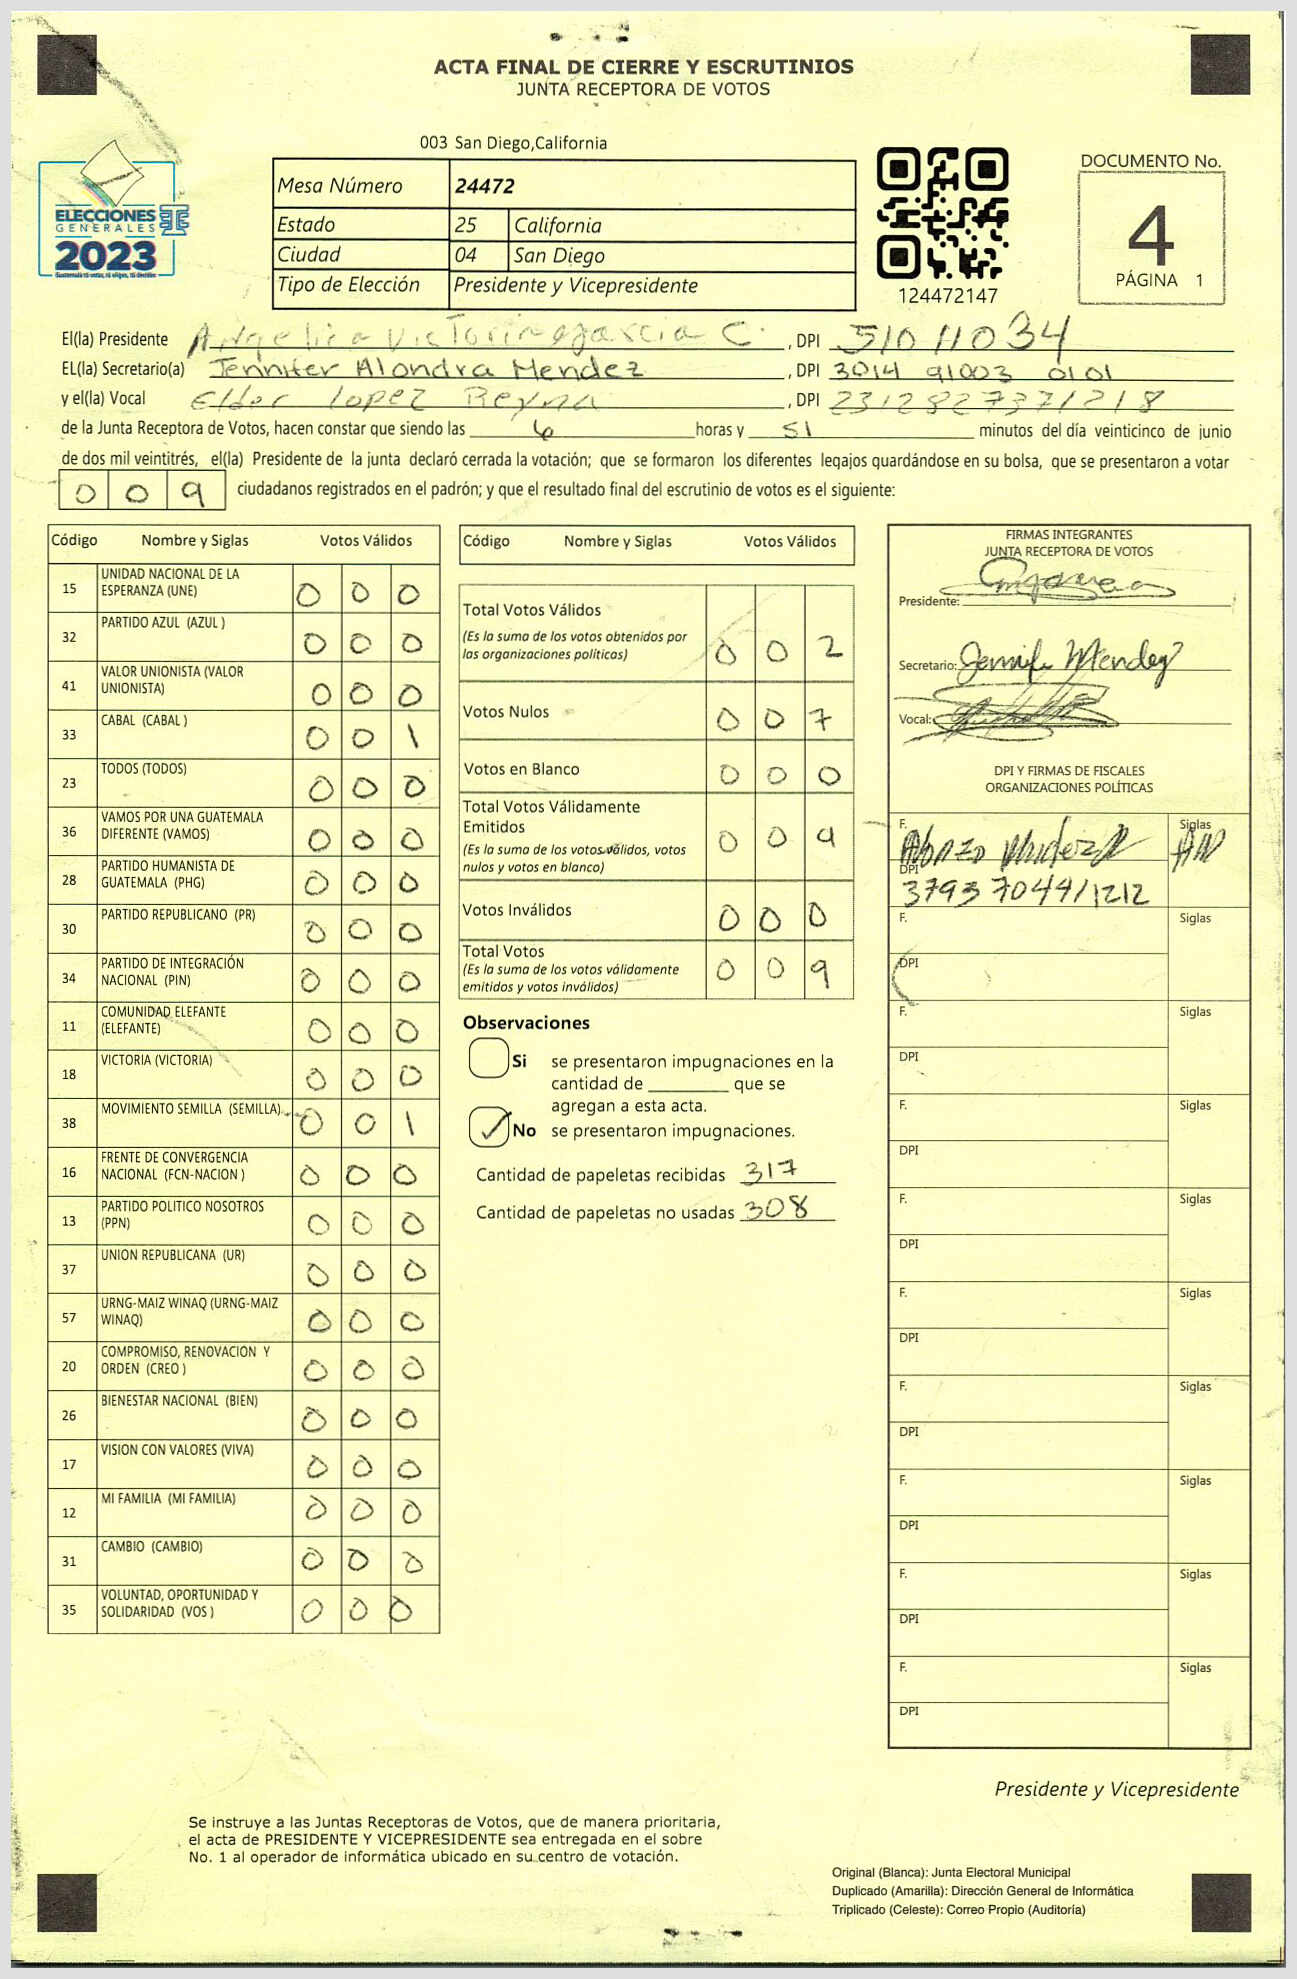 ACTA FINAL DE CIERRE Y ESCRUTINIOS
JUNTA RECEPTORA DE VOTOS
003 San Diego,California
ELECCIONES
GENERALES
2023
Mesa Número 24472
Estado 25 California
Ciudad 04 San Diego
Tipo de Elección Presidente y Vicepresidente
124472147
DOCUMENTO No.
4
PÁGINA 1
El(la) Presidente Angelica Victorina garcia C. , DPI 51011034
EL(la) Secretario(a) Jennifer Alondra Mendez , DPI 3014 91003 0101
y el(la) Vocal Elder Lopez Reyna , DPI 2312827371218
de la Junta Receptora de Votos, hacen constar que siendo las 6 horas y 51 minutos del día veinticinco de junio
de dos mil veintitrés, el(la) Presidente de la junta declaró cerrada la votación; que se formaron los diferentes legajos guardándose en su bolsa, que se presentaron a votar
0 0 9 ciudadanos registrados en el padrón; y que el resultado final del escrutinio de votos es el siguiente:
Código Nombre y Siglas Votos Válidos
15 UNIDAD NACIONAL DE LA
ESPERANZA (UNE) 0 0 0
32 PARTIDO AZUL (AZUL ) 0 0 0
41 VALOR UNIONISTA (VALOR
UNIONISTA) 0 0 0
33 CABAL (CABAL ) 0 0 1
23 TODOS (TODOS) 0 0 0
36 VAMOS POR UNA GUATEMALA
DIFERENTE (VAMOS) 0 0 0
28 PARTIDO HUMANISTA DE
GUATEMALA (PHG) 0 0 0
30 PARTIDO REPUBLICANO (PR) 0 0 0
34 PARTIDO DE INTEGRACIÓN
NACIONAL (PIN) 0 0 0
11 COMUNIDAD ELEFANTE
(ELEFANTE) 0 0 0
18 VICTORIA (VICTORIA) 0 0 0
38 MOVIMIENTO SEMILLA (SEMILLA) 0 0 1
16 FRENTE DE CONVERGENCIA
NACIONAL (FCN-NACION ) 0 0 0
13 PARTIDO POLITICO NOSOTROS
(PPN) 0 0 0
37 UNION REPUBLICANA (UR) 0 0 0
57 URNG-MAIZ WINAQ (URNG-MAIZ
WINAQ) 0 0 0
20 COMPROMISO, RENOVACION Y
ORDEN (CREO ) 0 0 0
26 BIENESTAR NACIONAL (BIEN) 0 0 0
17 VISION CON VALORES (VIVA) 0 0 0
12 MI FAMILIA (MI FAMILIA) 0 0 0
31 CAMBIO (CAMBIO) 0 0 0
35 VOLUNTAD, OPORTUNIDAD Y
SOLIDARIDAD (VOS ) 0 0 0
Código Nombre y Siglas Votos Válidos
Total Votos Válidos
(Es la suma de los votos obtenidos por
las organizaciones políticas) 0 0 2
Votos Nulos 0 0 7
Votos en Blanco 0 0 0
Total Votos Válidamente
Emitidos
(Es la suma de los votos válidos, votos
nulos y votos en blanco) 0 0 9
Votos Inválidos 0 0 0
Total Votos
(Es la suma de los votos válidamente
emitidos y votos inválidos) 0 0 9
Observaciones
Si se presentaron impugnaciones en la
cantidad de ________ que se
agregan a esta acta.
No se presentaron impugnaciones.
Cantidad de papeletas recibidas 317
Cantidad de papeletas no usadas 308
FIRMAS INTEGRANTES
JUNTA RECEPTORA DE VOTOS
Presidente:
Secretario: Jennifer Mendez
Vocal:
DPI Y FIRMAS DE FISCALES
ORGANIZACIONES POLÍTICAS
F. Siglas
DPI
3793 70449 1212
F. Siglas
DPI
F. Siglas
DPI
F. Siglas
DPI
F. Siglas
DPI
F. Siglas
DPI
F. Siglas
DPI
F. Siglas
DPI
F. Siglas
DPI
F. Siglas
DPI
Presidente y Vicepresidente
Se instruye a las Juntas Receptoras de Votos, que de manera prioritaria,
el acta de PRESIDENTE Y VICEPRESIDENTE sea entregada en el sobre
No. 1 al operador de informática ubicado en su centro de votación.
Original (Blanca): Junta Electoral Municipal
Duplicado (Amarilla): Dirección General de Informática
Triplicado (Celeste): Correo Propio (Auditoría)